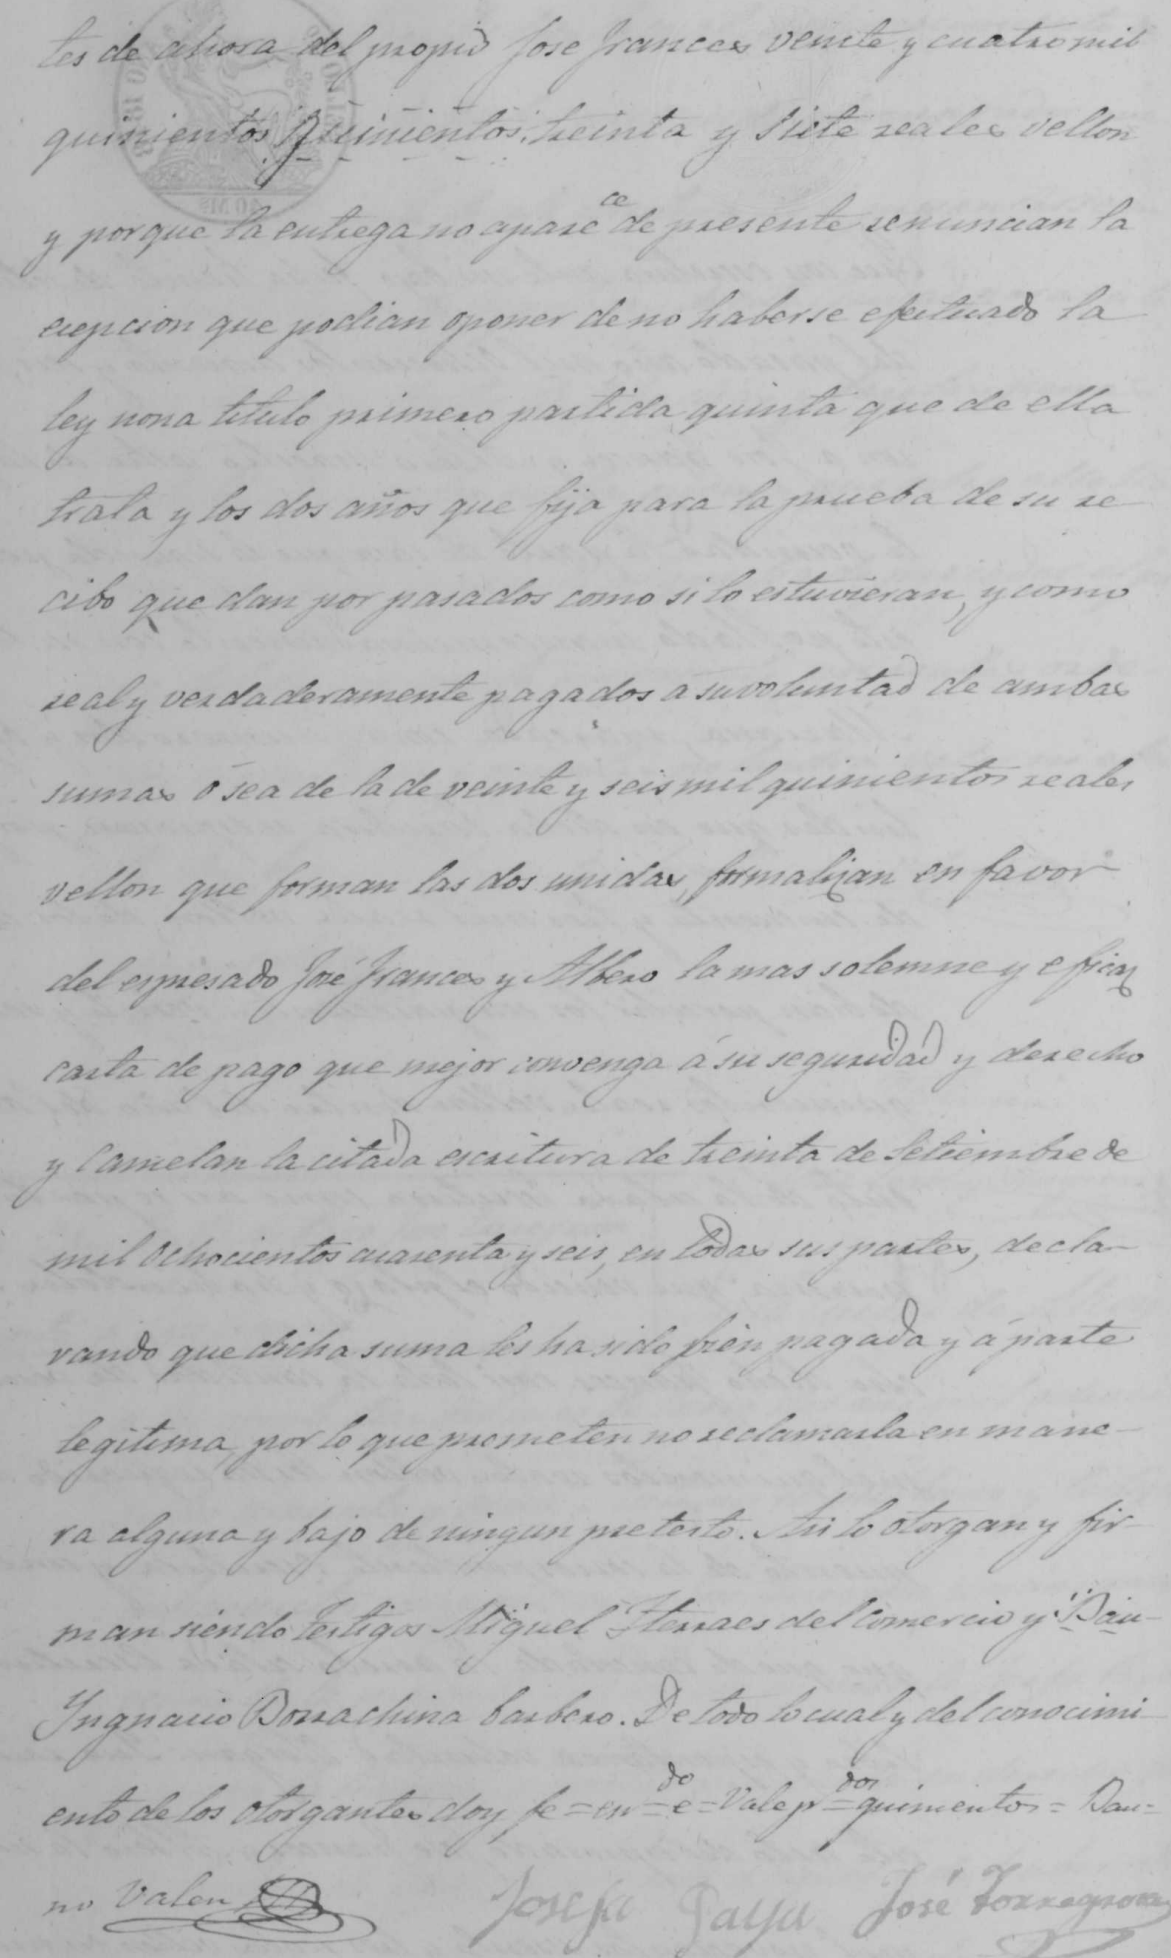 tes de ahora del propio Jose Frances veinte y cuatro mil
quinientos quinientos, treinta y siete reales vellon
y porque la entrega no aparece de presente renuncian la
ecepcion que podian oponer de no haberse efectuado la
ley nona titulo primero partida quinta que de ella
trata y los dos años que fija para la prueba de su re
cibo que dan por pasados como si lo estuvieran, y como
real y verdaderamente pagados a su voluntad de ambas
sumas ó sea de la de veinte y seis mil quinientos reales
vellon que forman las dos unidas, formalizan en favor
del espresado José Frances y Albero la mas solemne y eficaz
carta de pago que mejor convenga á su seguridad y derecho
y Camelan la citada escritura de treinta de Setiembre de
mil ochocientos cuarenta y seis, en todas sus partes, decla-
rando que dicha suma les ha sido bien pagada y á parte
legitima, por lo que prometen no reclamarla en mane-
ra alguna y bajo de ningun pretesto. Asi lo otorgan y fir-
man siendo testigos Miguel Sterraes del Comercio y Dau-
Yngnacio Borrachina barbero. De todo lo cual y del conocimi-
ento de los otorgantes doy fe = endo = e = Vale pr dos quinientos = Dau=
no Valen
Josefa Paya José Torregrosa